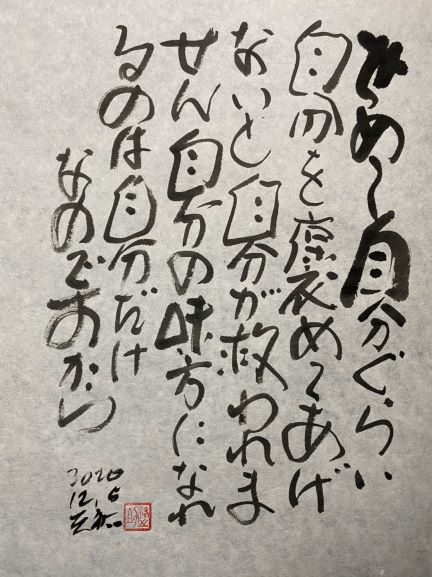 せめて自分ぐらい
自分を褒めてあげ
ないと自分が救われま
せん自分の味方になれ
るのは自分だけ
なのですから
2020
12,6